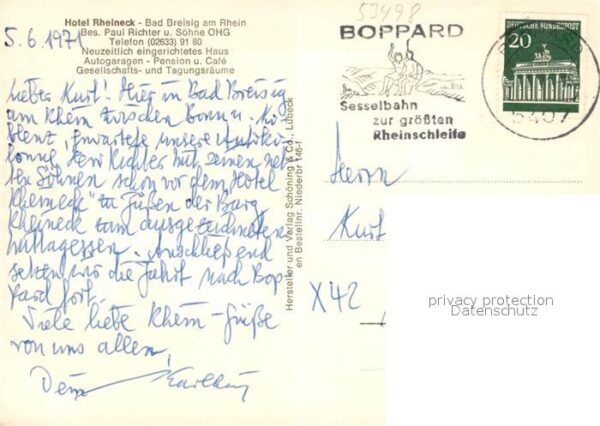 Hotel Rheineck - Bad Breisig am Rhein
Bes. Paul Richter u. Söhne OHG
Telefon (02633) 91 80
Neuzeitlich eingerichtetes Haus
Autogaragen - Pension u. Café
Gesellschafts- und Tagungsräume
5.6.1971
Lieber Kurt! Hier in Bad Breisig
am Rhein zwischen Bonn u. Ko-
blenz, erwartete unsere Autoko-
lonne Herr Richter mit seinen net-
ten Söhnen schon vor dem "Hotel
Rheineck" zu Füßen der Burg
Rheineck zum ausgezeichneten
Mittagessen. Anschließend
setzen wir die Fahrt nach Bop-
pard fort.
Viele liebe Rhein-Grüße
von uns allen,
Dein
Hersteller und Verlag Schöning & Co., Lübeck
en Bestellnr. Niederbr 146-f
53498
BOPPARD
Sesselbahn
zur größten
Rheinschleife
DEUTSCHE BUNDESPOST
20
5407
Herrn
Kurt
X42
privacy protection
Datenschutz